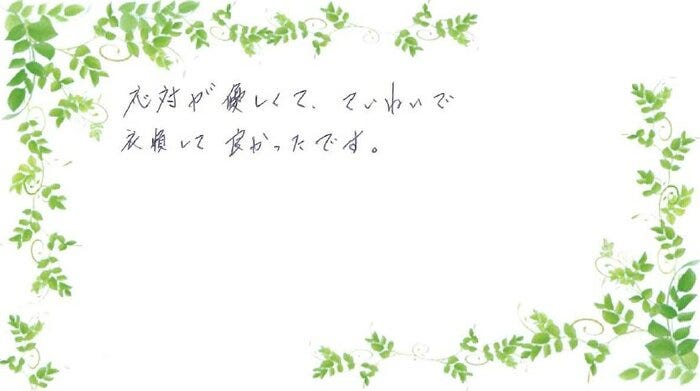 応対が優しくて、ていねいで
依頼して良かったです。